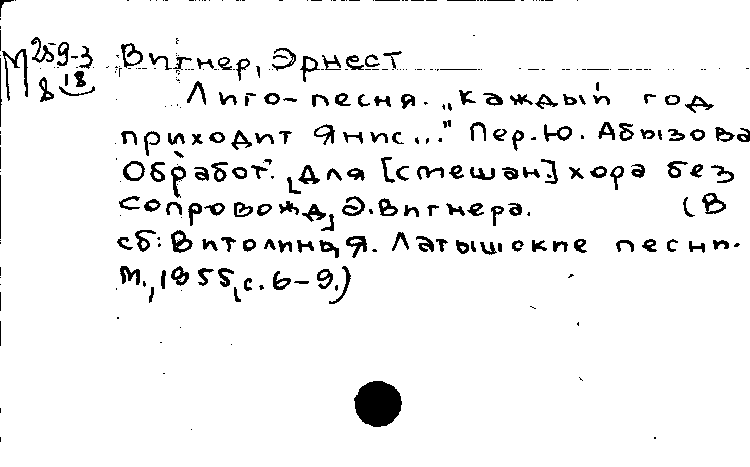 М 259-3 Вигнер, Эрнест
8 18
Лиго-песня. „Каждый год
приходит Янис..." Пер. Ю. Абызова
Обработ. [для [смешан.] хора без
сопровожд.] Э. Вигнера. (В
сб: Витолинь, Я. Латышские песни.
М., 1955, с. 6-9.)